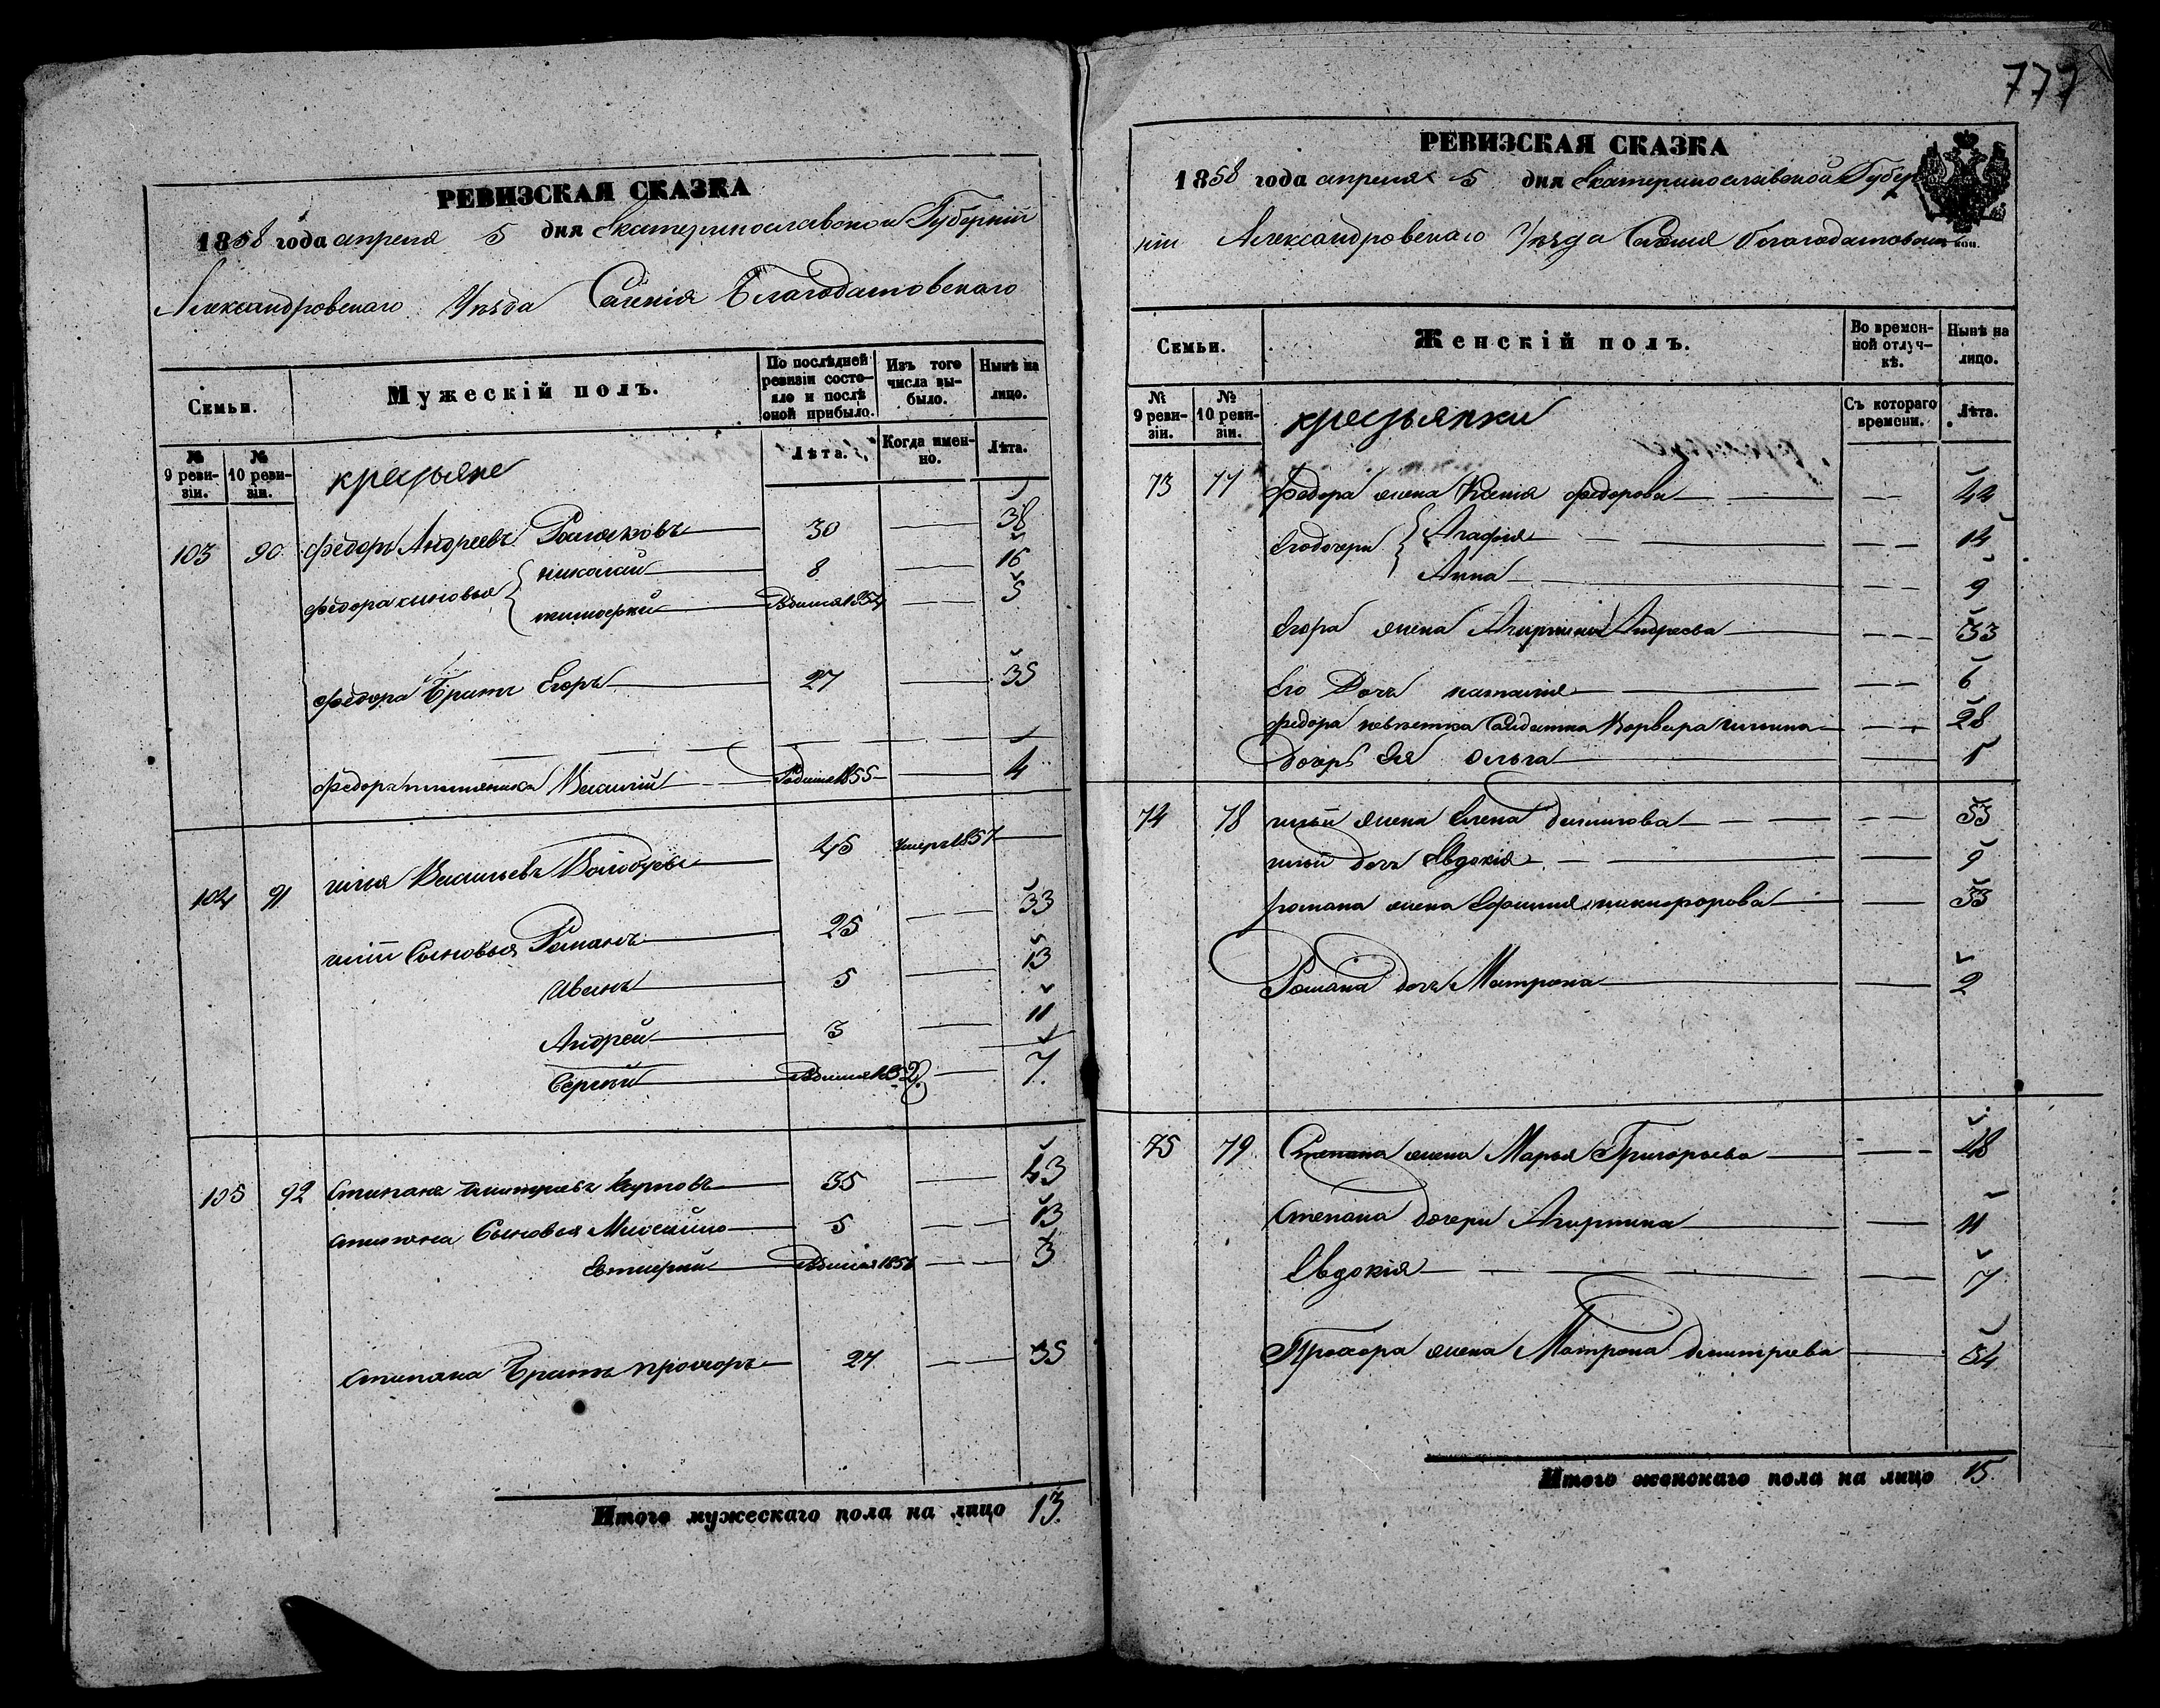 777
РЕВИЗСКАЯ СКАЗКА
1858 года апреля 5 дня Екатеринославской Губерніи
Александровскаго Уѣзда Селенія Благодатовскаго
Семьи.
Мужескій полъ.
По послѣдней ревизіи состояло и послѣ оной прибыло.
Изъ того числа выбыло.
Нынѣ на лицо.
№ 9 ревизіи.
№ 10 ревизіи.
крестьяне
Лѣта.
Когда именно.
Лѣта.
103 90 Федоръ Андреевъ 30 — 38
Федора сыновья Николай 8 — 16
Тимофей Родился 1854 — 5
Федора Братъ Егоръ 27 — 35
Федора племянникъ Василій Родился 1855 — 4
104 91 Илья Васильевъ 45 Умеръ 1857
Ильи Сыновья Романъ 25 — 33
Иванъ 5 — 13
Андрей 3 — 11
Сергѣй Родился 1852 — 7.
105 92 Степанъ Дмитріевъ 35 — 43
Степана Сыновья 5 — 13
Родился 1856 — 3
Степана Братъ Прохоръ 27 — 35
Итого мужескаго пола на лицо 13.
РЕВИЗСКАЯ СКАЗКА
1858 года апреля 5 дня Екатеринославской Губер
ніи Александровскаго Уѣзда Селенія Благодатовскаго
Семьи.
Женскій полъ.
Во временной отлучкѣ.
Нынѣ на лицо.
№ 9 ревизіи.
№ 10 ревизіи.
крестьянки
Съ котораго времени.
Лѣта.
73 77 Федора жена Ксенія Федорова — 42
Его дочери Агафія — 14
Анна — 9
Егора жена Агрипина Андреева — 33
Его Дочь Наталія — 6
Федора невѣстка Солдатка Варвара Ильина — 28
Дочерь Ея Ольга — 1
74 78 Ильи жена Елена — 53
Ильи дочь Евдокія — 9
Романа жена Ефимия Никифорова — 33
Романа дочь Матрона — 2
75 79 Степана жена Марья Григорьева — 48
Степана дочери Агрипина — 11
Евдокія — 7
Прохора жена Матрона Дмитріева — 34
Итого женскаго пола на лицо 15.